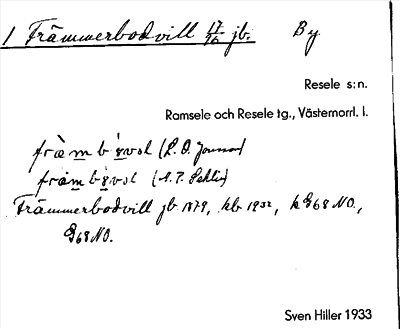 1 Främmerbodvill 17/16 jb. By
Resele s:n.
Ramsele och Resele tg., Västernorrl. l.
(L. O. Jonsson)
(A. P. Sehlin)
Främmerbodvill jb 1879, kb 1932, k G68 NO.,
G68 NO.
Sven Hiller 1933